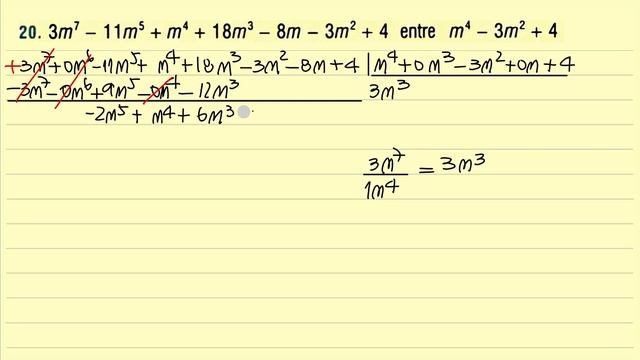 20. 3m⁷ − 11m⁵ + m⁴ + 18m³ − 8m − 3m² + 4 entre m⁴ − 3m² + 4
+3m⁷+0m⁶−11m⁵+ m⁴+18m³−3m²−8m+4 | m⁴+0m³−3m²+0m+4
−3m⁷−0m⁶+9m⁵−0m⁴−12m³ 3m³
−2m⁵+ m⁴+6m³
3m⁷ = 3m³
1m⁴